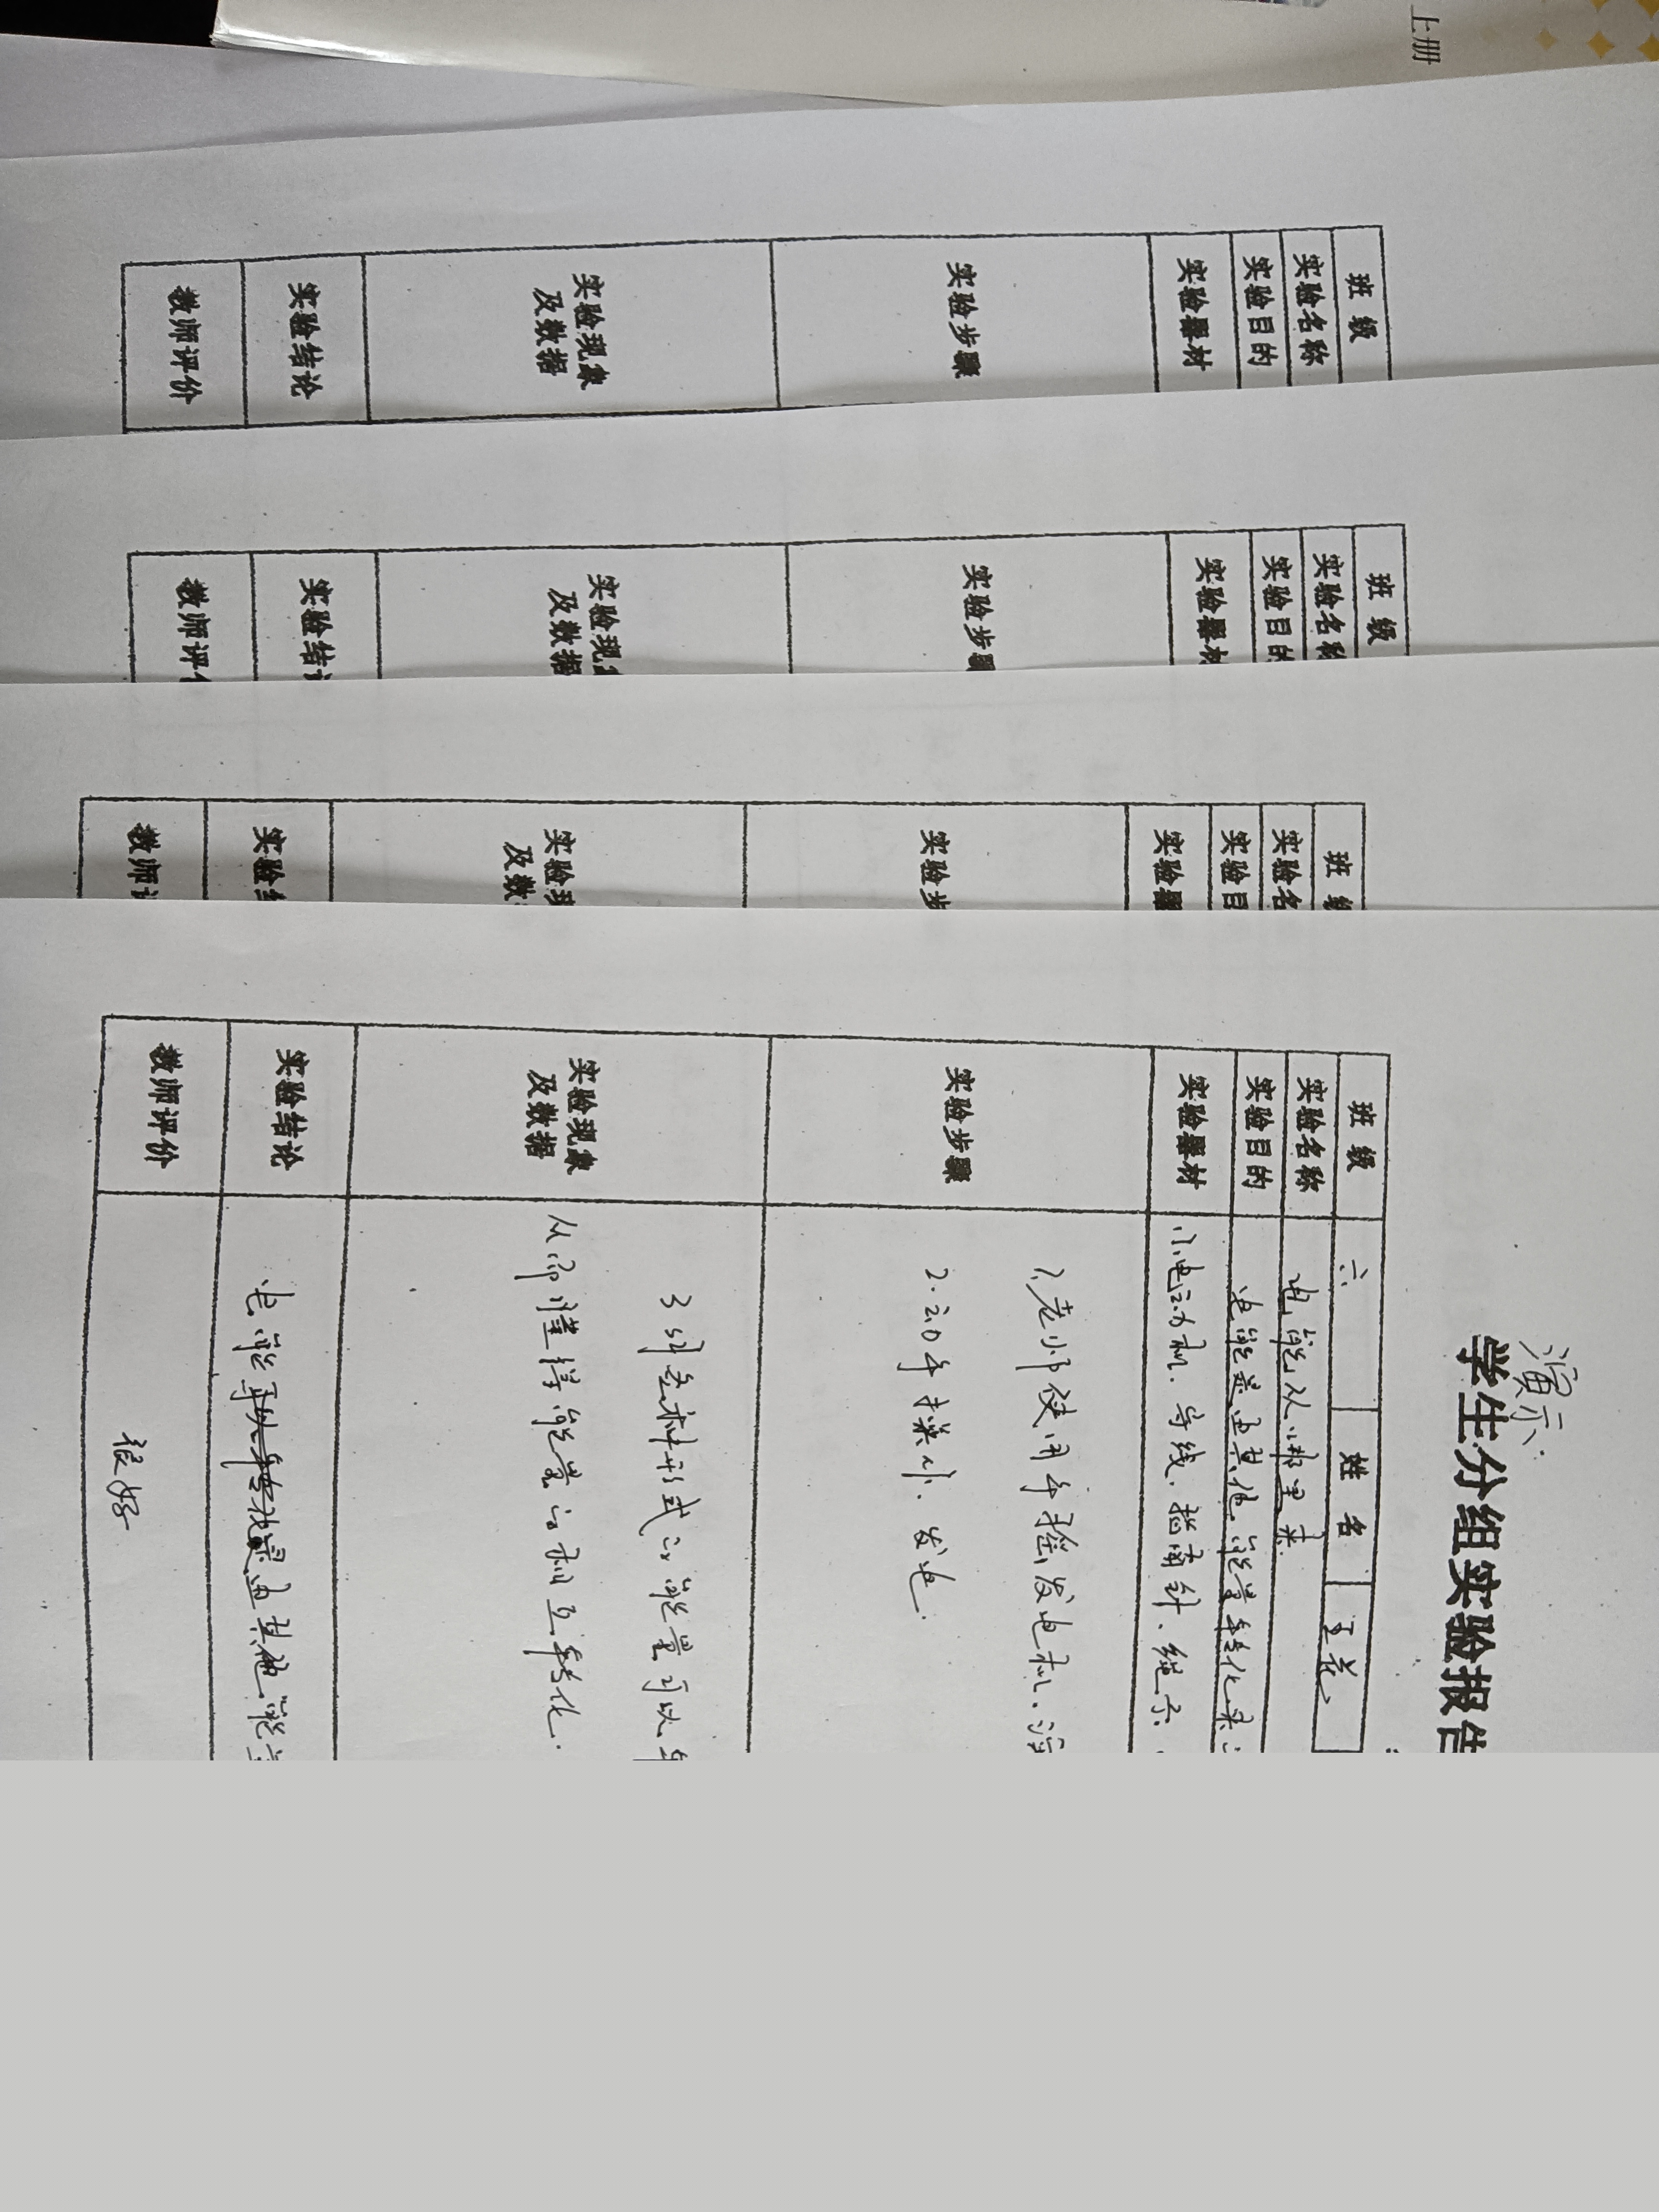 上册
班 级
实验名称
实验目的
实验器材
实验步骤
实验现象
及数据
实验结论
教师评价
班 级
实验名称
实验目的
实验器材
实验步骤
实验现象
及数据
实验结
教师评
班 级
实验名
实验目
实验器
实验步
实验现
及数
实验结
教师评
演示.
学生分组实验报告
班 级 六 姓 名 王花
实验名称 电能从哪里来
实验目的 电能是由其他能量转化来
实验器材 小电动机、导线、指南针、绳子.
实验步骤 1、老师使用手摇发电机、演
2.
发电.
实验现象
及数据
形式的能量可以
能量的相互转化.
实验结论 电能 是由其他能
教师评价 很好